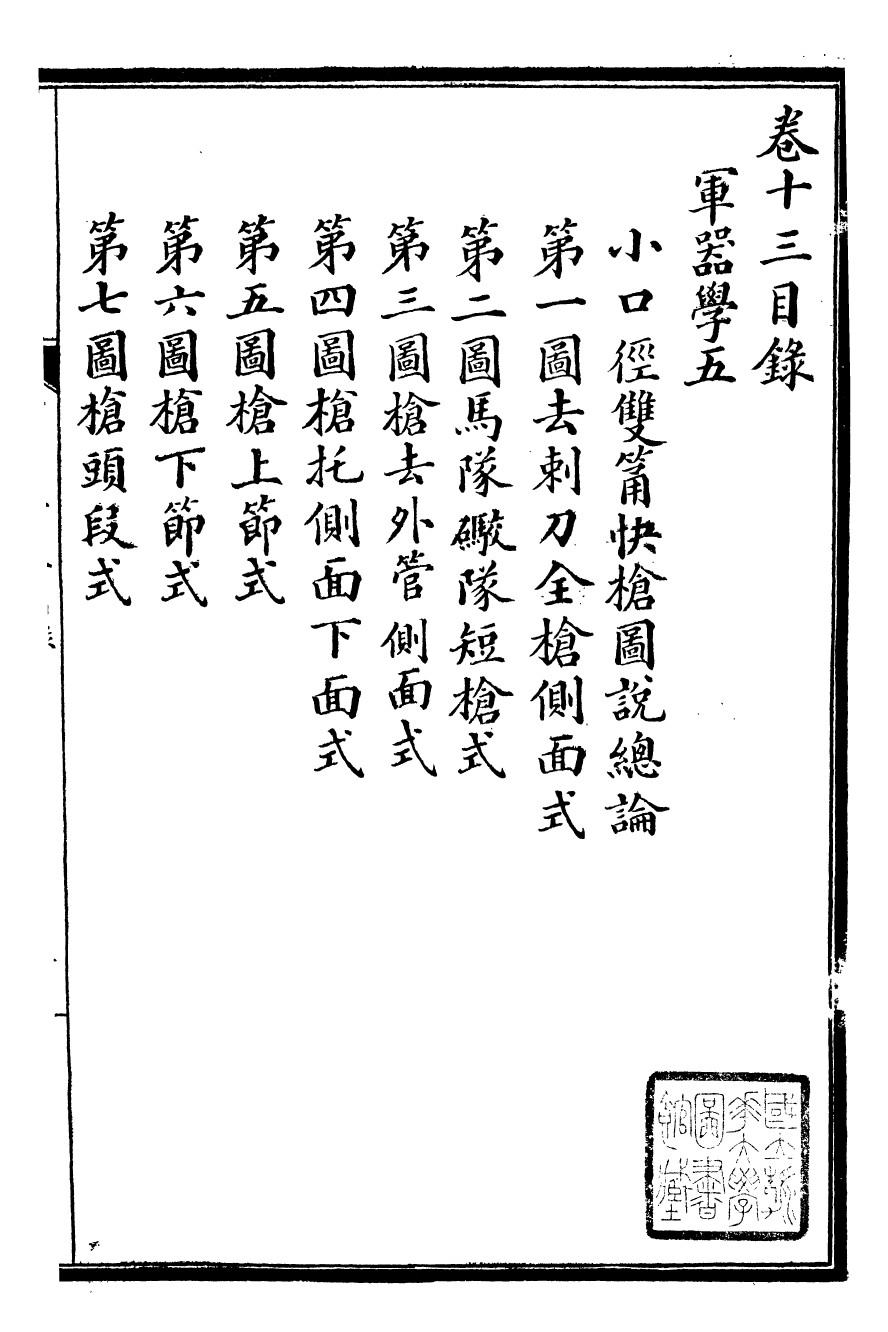 卷十三目錄
軍器學五
小口徑雙筩快槍圖說總論
第一圖去刺刀全槍側面式
第二圖馬隊礮隊短槍式
第三圖槍去外管側面式
第四圖槍托側面下面式
第五圖槍上節式
第六圖槍下節式
第七圖槍頭段式
國立清
華大學
圖書
館藏